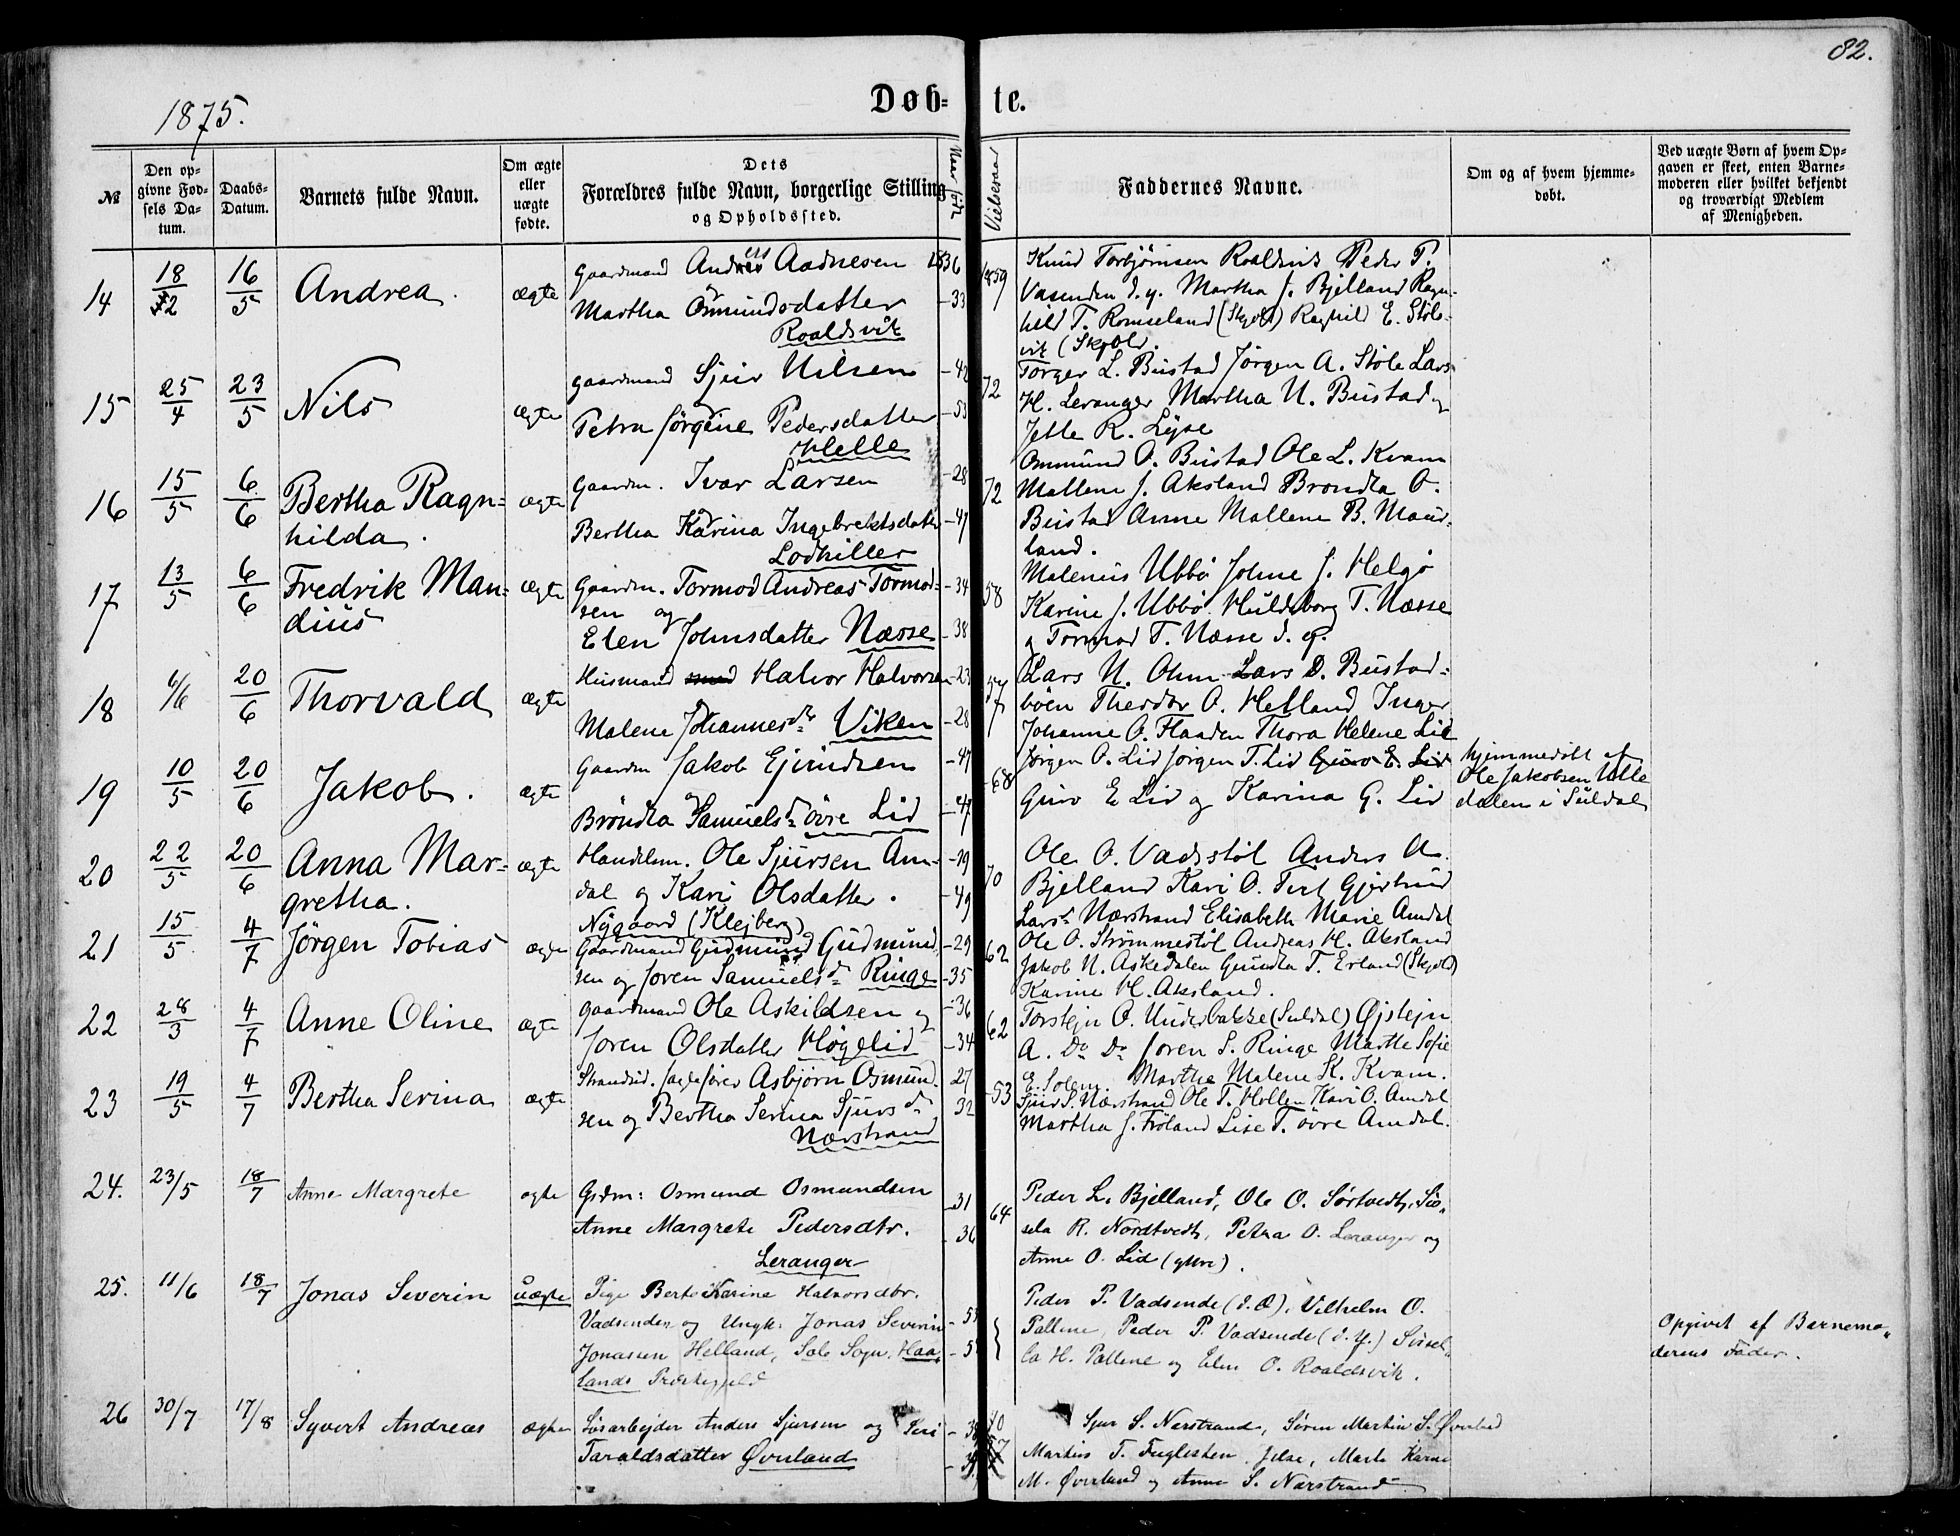 82.
1875.
Døb-
te.
№
Den op-
givne Fød-
sels Da-
tum.
Daabs-
Datum.
Barnets fulde Navn.
Om ægte
eller
uægte
fødte.
Dets
Forældres fulde Navn, borgerlige Stilling
og Opholdssted.
Naar født
Vielsesaar
Faddernes Navne.
Om og af hvem hjemme-
døbt.
Ved uægte Børn af hvem Op-
gaven er skeet, enten Barne-
moderen eller hvilket bekjendt
og troværdigt Medlem
af Menigheden.
14 18/12 16/5 Andrea. ægte
Gaardmand Anders Aadnesen 1836
Martha Osmundsdatter -33
Roaldsvik
1859
Knud Torbjørnsen Roaldsvik Peder P.
Vasenden d. y. Martha J. Bjelland Ragn-
hild T. Romseland (Skjold) Raghild E. Støle-
vik (Skjold).
15 25/4 23/5 Nils ægte
Gaardmand Sjur Nilsen -42
og
Petra Jørgine Pedersdatter -53
Helle
72
Torger L. Bustad Jørgen A. Støle Lars
H. Leranger Martha N. Bustad og
Jette R. Lyse
16 15/5 6/6 Bertha Ragn-
hilda. ægte
Gaardm. Ivar Larsen -28
og
Bertha Karina Ingebrektsdatter -41
Lodhiller
72
Ommund O. Bustad Ole L. Kvam
Mallene J. Aksland Brøndla O.
Bustad Anne Mallene B. Maur-
land.
17 13/5 6/6 Fredrik Man-
dius ægte
Gaardm. Tormod Andreas Tormod- -34
sen og
Elen Johnsdatter Næsse -38
58
Malenius Ubbø Johne J. Helgø
Karine J. Ubbø Huldborg T. Næsse
og Tormod T. Næsse d. y.
18 6/6 20/6 Thorvald ægte
Husmand med Halvor Halvorsen -23
og
Malene Johannesdr Viken -28
57
Lars N. Ohm Lars D. Bustad-
bøen Theodor O. Helland Inger
Johanne O. Flaaden Thora Helene Lid
19 10/5 20/6 Jakob. ægte
Gaardm Jakob Ejvindsen -47
og
Brøndla Samuelsd. øvre Lid -47
-68
Jørgen O. Lid Jørgen T. Lid Guro E. Lid
Guro E Lid og Karina G. Lid
hjemmedøbt af
Ole Jakobsen Ulle
dalen i Suldal
20 22/5 20/6 Anna Mar-
gretha. ægte
Handelsm. Ole Sjursen Am- -19
dal og Kari Olsdatter. -49
Nygaard (Klejberg)
70
Ole O. Vadstøl Anders A.
Bjelland Kari O. Tert Gjertrud
Larsd. Nærstrand Elisabeth Marie Amdal
21 15/5 4/7 Jørgen Tobias ægte
Gaardmand Gudmund Gudmund- -29
sen og Joren Samuelsd. Ringe -35
62
Ole O. Strømmestøl Andreas H. Aksland
Jakob N. Askedalen Gundla T. Erland (Skjold)
Karine H. Aksland.
22 28/3 4/7 Anne Oline ægte
Gaardmand Ole Askildsen og -36
Joren Olsdatter Høgelid -34
62
Torstejn O. Underbakke (Suldal) Øjstejn
A. Do Do Joren S. Ringe Marthe Sofie
E. Solem. Martha Malene K. Kvam.
23 19/5 4/7 Bertha Serina ægte
Strandsid. Asbjørn Osmund- 27
sen og Bertha Serina Sjursd. 32
Nærstrand
-53
Sjur S. Nærstrand Ole T. Hollen Kari O. Amdal
Martha J. Frøland Lise T. øvre Amdal.
24. 23/5 18/7 Anne Margrete ægte
Grdm: Osmund Osmundsen -31
Anne Margrete Pedersdtr. -36
Leranger
64
Peder L. Bjelland, Ole O. Sørtvedt, Sis-
sela R. Nordtvedt, Petra O. Leranger og
Anne O. Lid (yttre).
25. 11/6 18/7 Jonas Severin uægte
Pige Berte Karine Halvorsdtr.
Vadsenden og Ungk. Jonas Severin
Jonassen Helland, Sole Sogn, Haa-
lands Præstegjeld
Peder P. Vadsende (d. Æ), Vilhelm O.
Pallene, Peder P. Vadsende (d. Y.) Sissel-
la H. Pallene og Elen O. Roaldsvik.
Opgivet af Barnemo-
derens Fader.
26 30/7 17/8 Syvert Andreas ægte
Søarbejder Anders Sjursen og Siri
Taraldsdatter Øverland
Sjur S. Nærstrand, Søren Martin S. Øverland
Martius T. Fuglesten Jelse, Marte Karine
M. Øverland og Anne S. Nærstrand